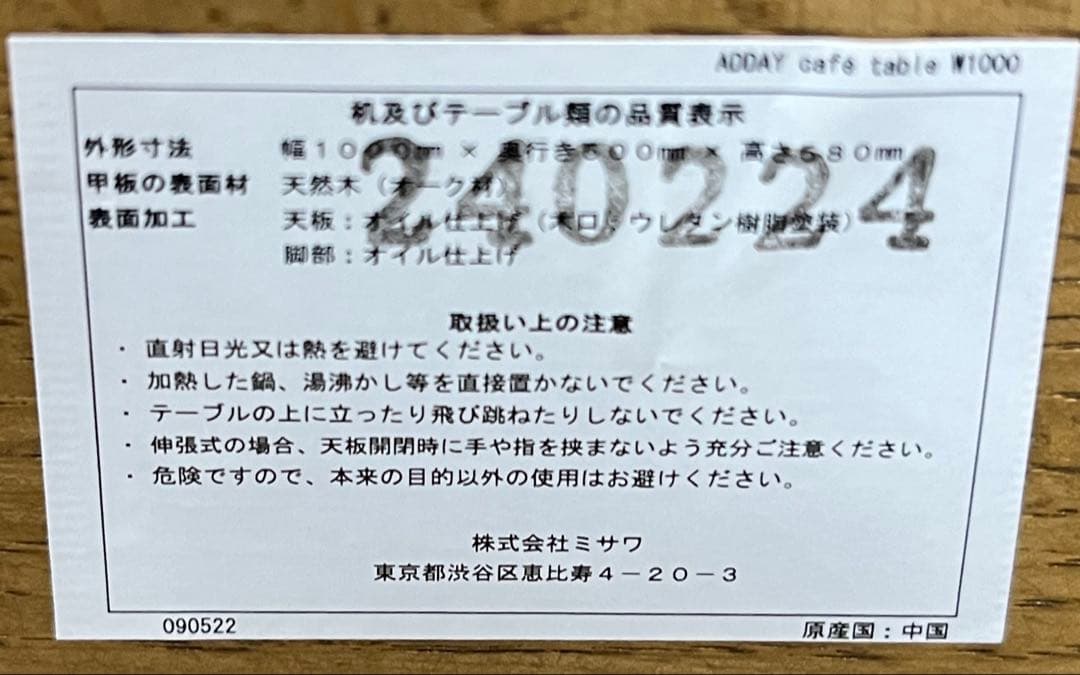 ADDAY café table W1000
机及びテーブル類の品質表示
外形寸法 幅1000mm × 奥行き500mm × 高さ580mm
甲板の表面材 天然木（オーク材）
表面加工 天板：オイル仕上げ（木口：ウレタン樹脂塗装）
脚部：オイル仕上げ
240224
取扱い上の注意
・ 直射日光又は熱を避けてください。
・ 加熱した鍋、湯沸かし等を直接置かないでください。
・ テーブルの上に立ったり飛び跳ねたりしないでください。
・ 伸張式の場合、天板開閉時に手や指を挟まないよう充分ご注意ください。
・ 危険ですので、本来の目的以外の使用はお避けください。
株式会社ミサワ
東京都渋谷区恵比寿４－２０－３
090522
原産国：中国